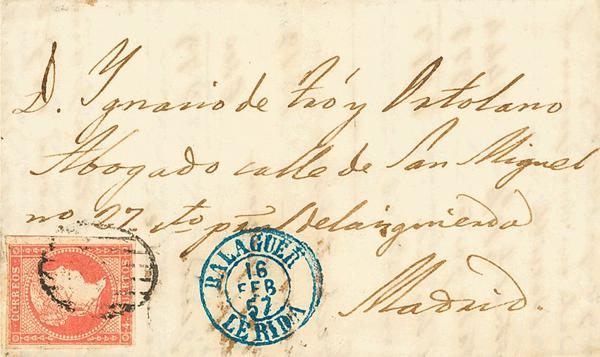 D. Ygnacio de Fró y Ortolano
Abogado calle de San Miguel
no 27 cto pral de la izquierda
Madrid.
CORREOS
BALAGUER
16
FEB
57
LERIDA